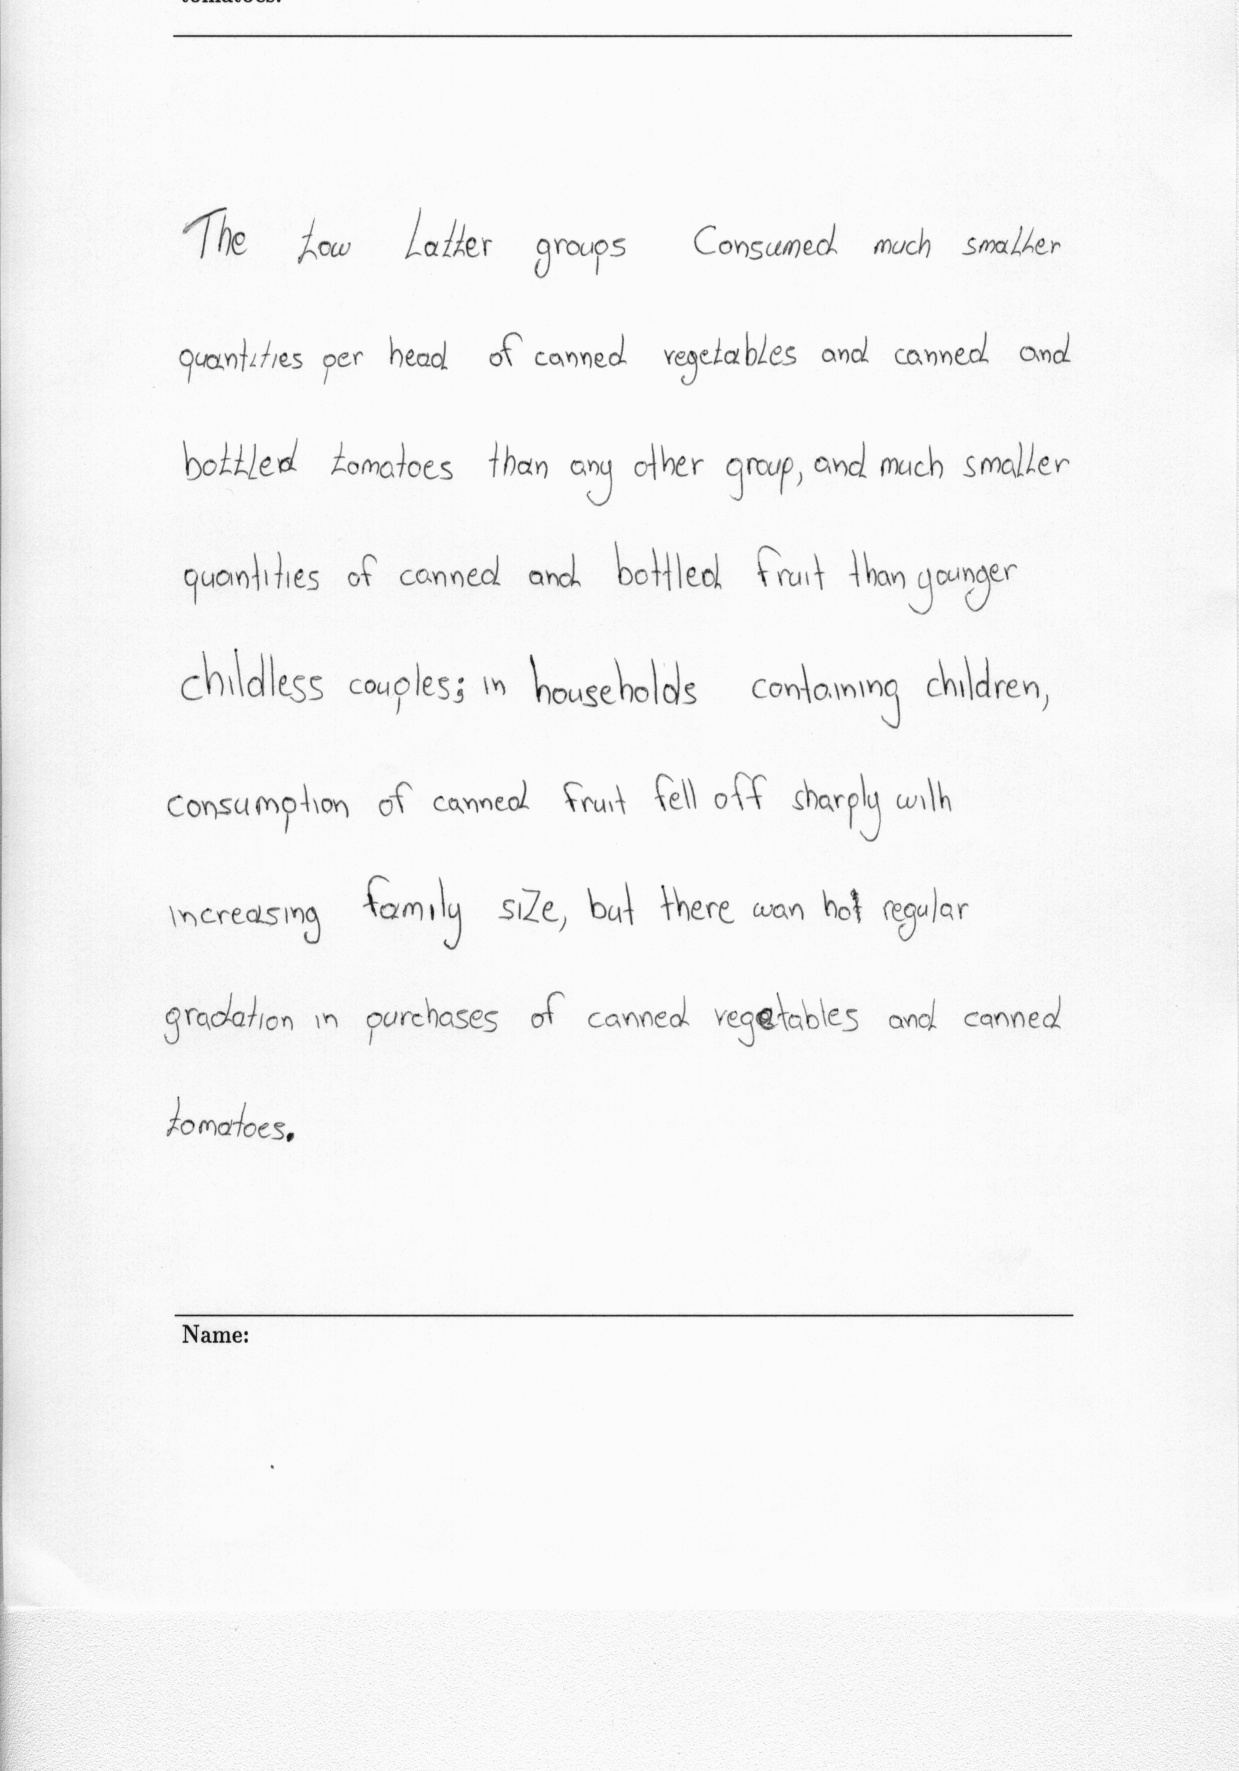 tomatoes.
The tow Latter groups Consumed much smaller
quantities per head of canned vegetables and canned and
bottled tomatoes than any other group, and much smaller
quantities of canned and bottled fruit than younger
childless couples; in households containing children,
consumption of canned fruit fell off sharply with
increasing family size, but there wan not regular
gradation in purchases of canned vegetables and canned
tomatoes.
Name: